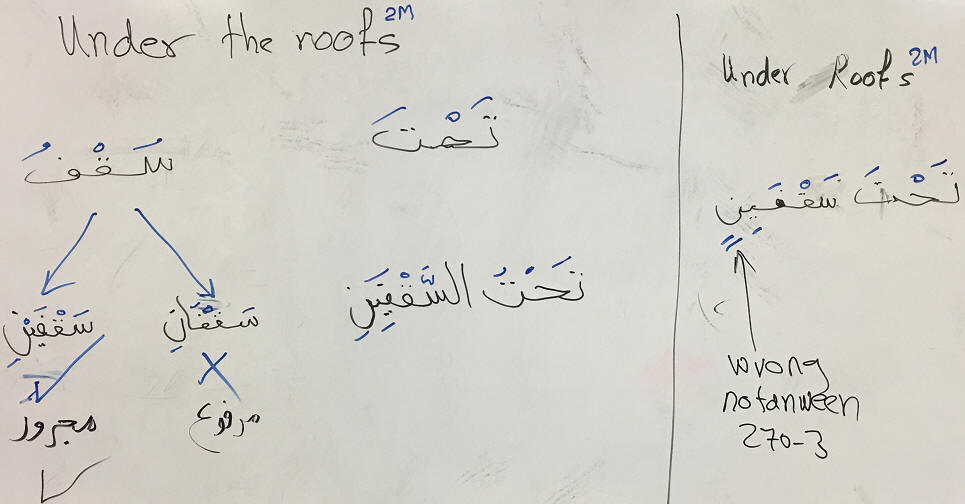 Under the roofs 2M
تَحْتَ
سُقْفُ
سَقْفَانِ
سَقْفَيْنِ
مرفوع
مجرور
تَحْتُ السَّقْفَيْنِ
Under Roofs 2M
تَحْتَ سَقْفَيِنٍ
wrong
notanween
270-3